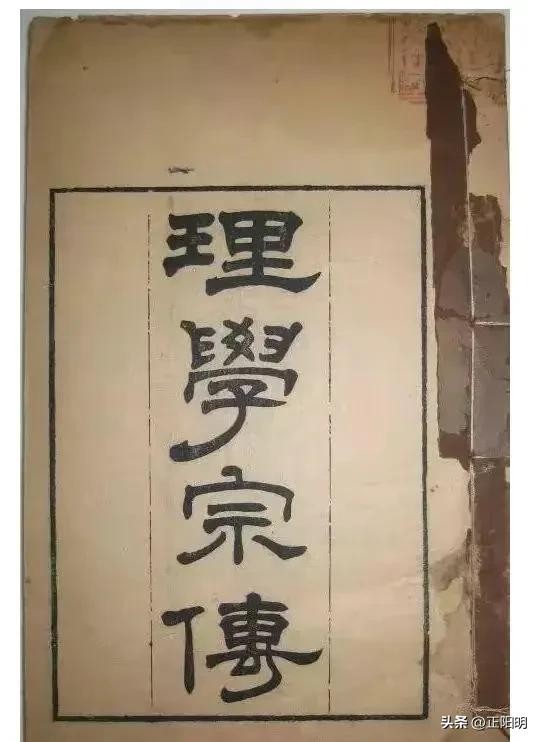 理學宗傳
头条 @正阳明